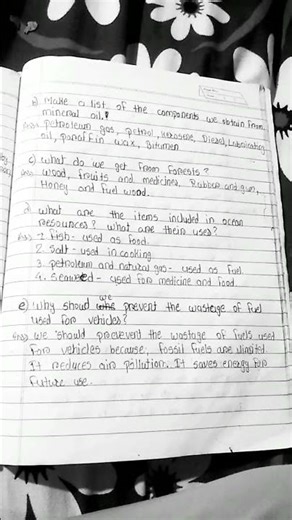 b) Make a list of the components we obtain from
mineral oil.
Ans) Petroleum gas, petrol, kerosene, Diesel, Lubricating
oil, paraffin wax, Bitumen
c) What do we get from Forests?
Ans) Wood, fruits and medicines, Rubber and gum,
Honey and fuel wood.
d) What are the items included in ocean
resources? What are their uses?
Ans) 1. Fish - used as food.
2. Salt - used in cooking
3. petroleum and natural gas - used as fuel
4. Seaweed - used for medicine and food
e) Why should we prevent the wastage of fuel
used for vehicles?
Ans) We should prevevent the wastage of fuels used
for vehicles because, Fossil fuels are limited.
It reduces air pollution. It saves energy for
future use.